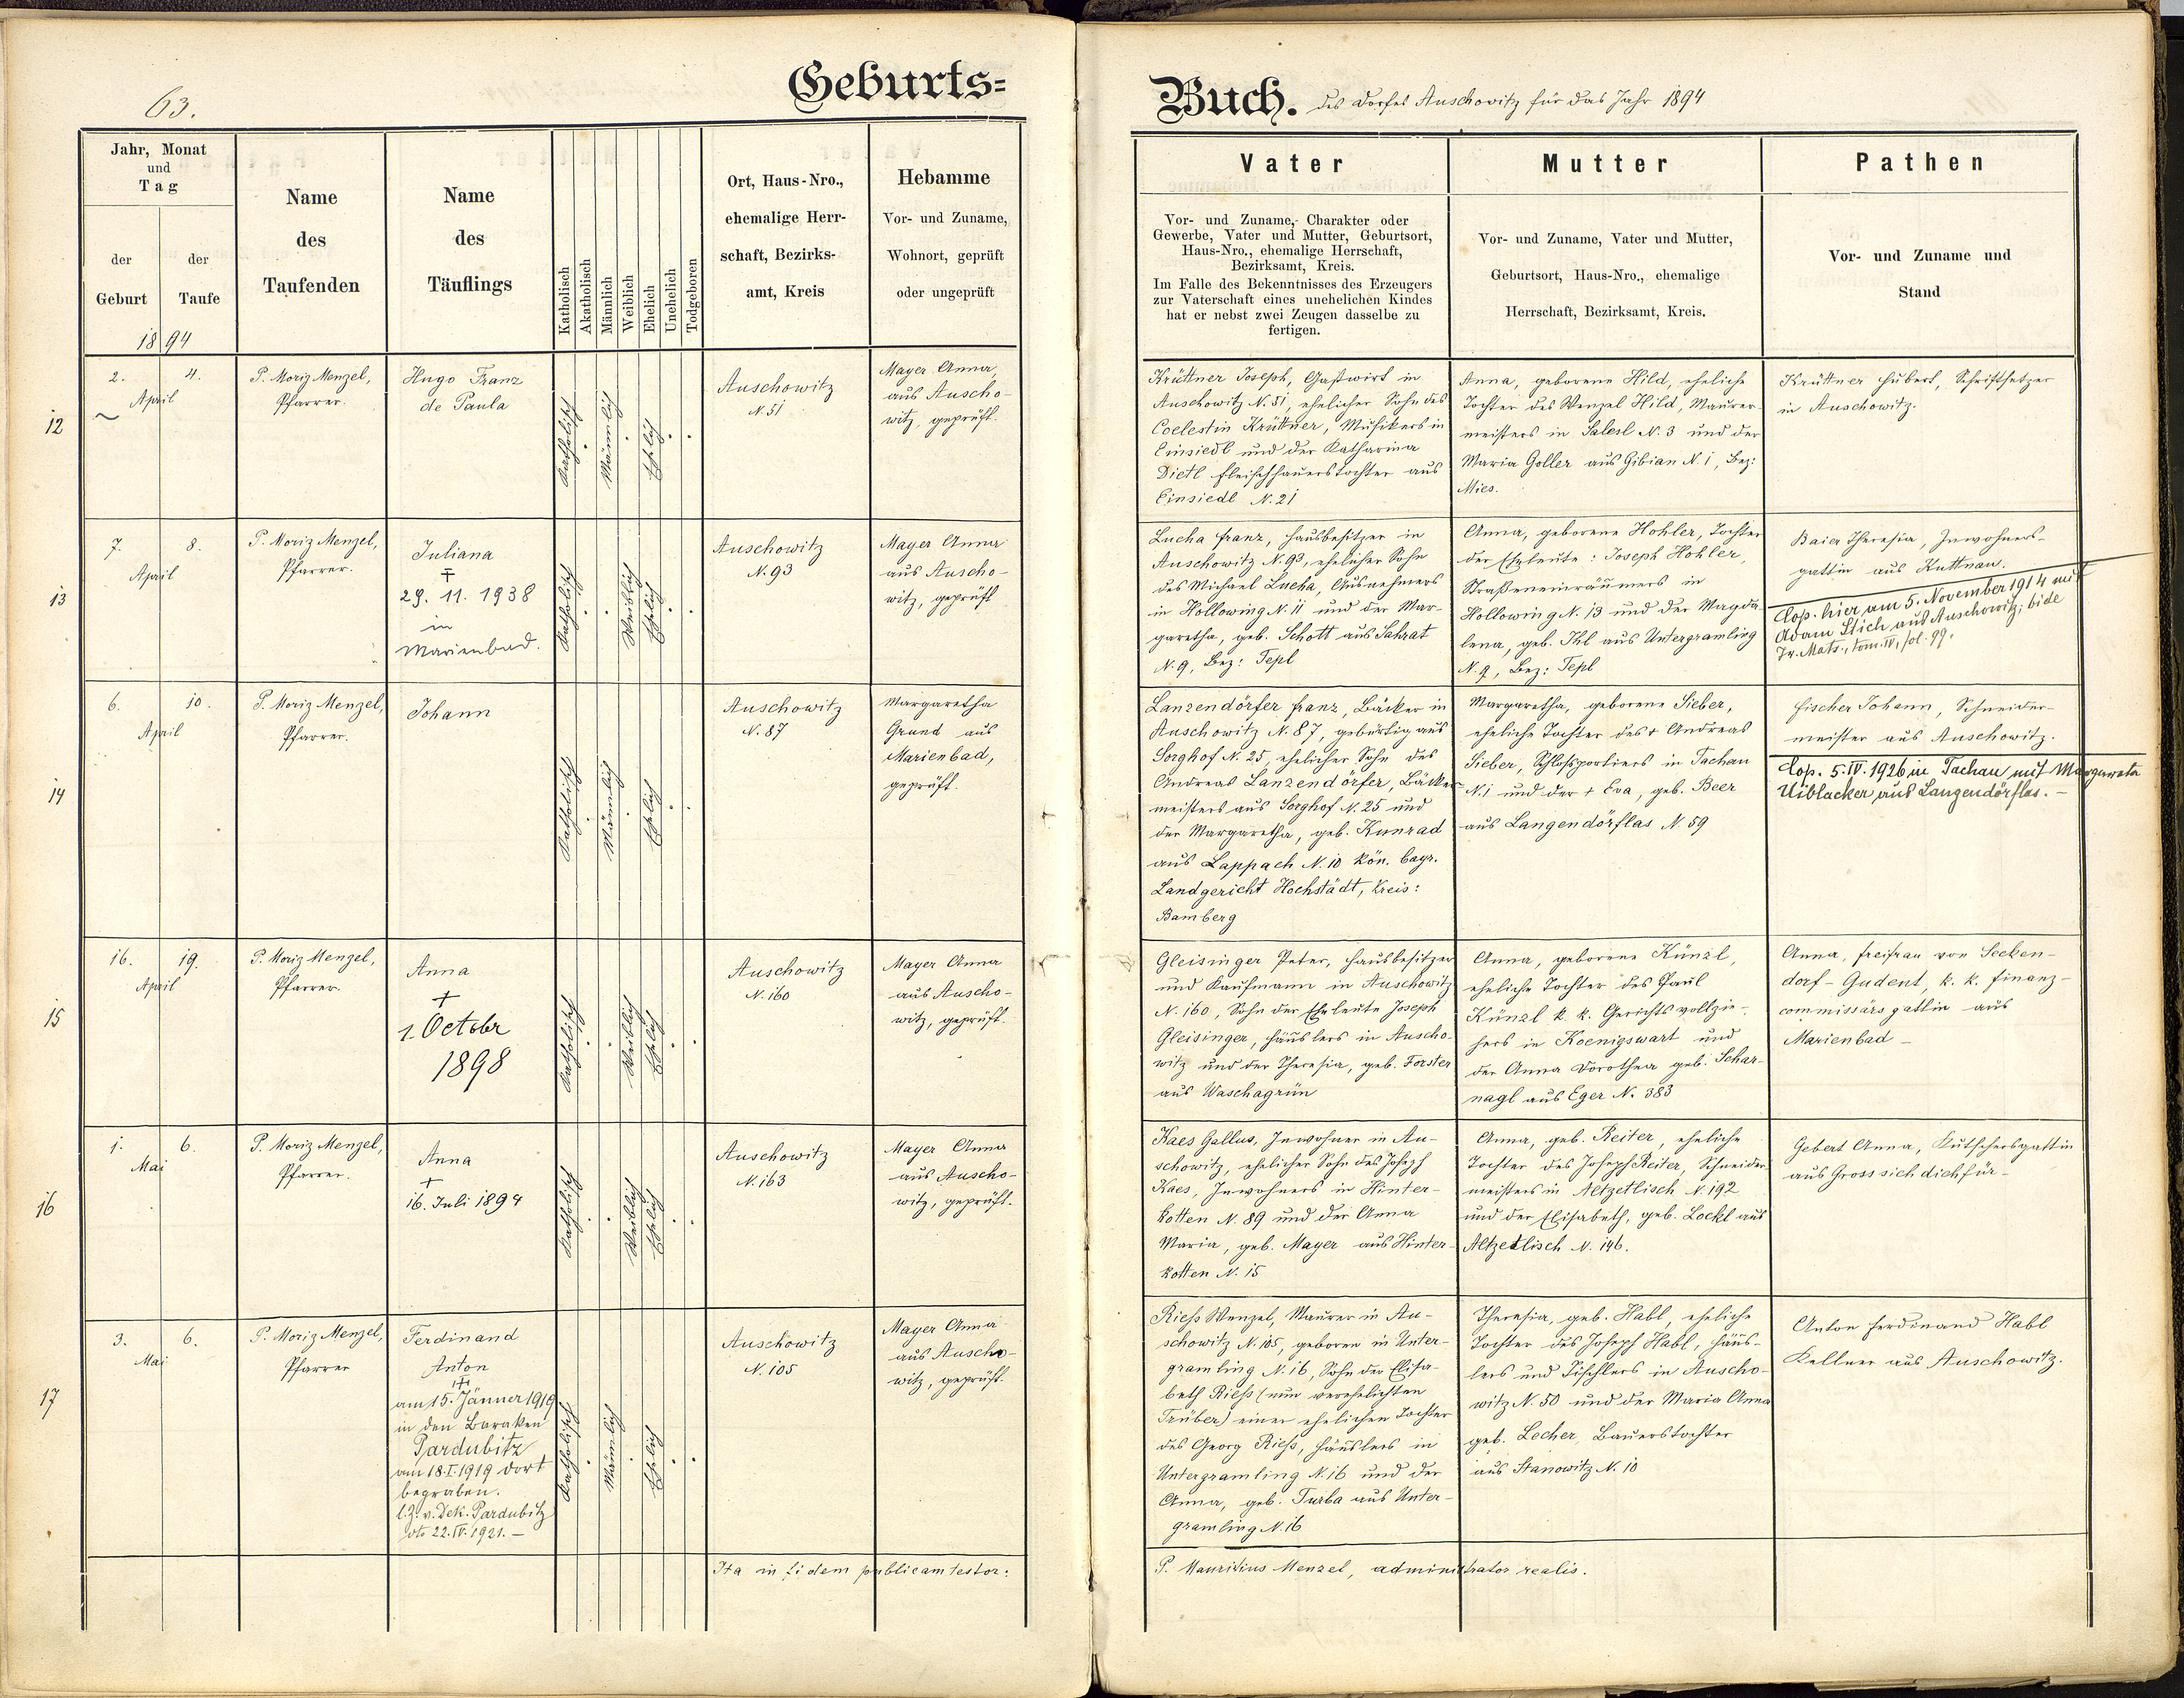 63.
Geburts=
Buch. des Dorfes Auschowitz für das Jahr 1894
Jahr, Monat
und
Tag
der
Geburt
der
Taufe
1894
Name
des
Taufenden
Name
des
Täuflings
Katholisch
Akatholisch
Männlich
Weiblich
Ehelich
Unehelich
Todgeboren
Ort, Haus-Nro.,
ehemalige Herr-
schaft, Bezirks-
amt, Kreis
Hebamme
Vor- und Zuname,
Wohnort, geprüft
oder ungeprüft
Vater
Vor- und Zuname, Charakter oder
Gewerbe, Vater und Mutter, Geburtsort,
Haus-Nro., ehemalige Herrschaft,
Bezirksamt, Kreis.
Im Falle des Bekenntnisses des Erzeugers
zur Vaterschaft eines unehelichen Kindes
hat er nebst zwei Zeugen dasselbe zu
fertigen.
Mutter
Vor- und Zuname, Vater und Mutter,
Geburtsort, Haus-Nro., ehemalige
Herrschaft, Bezirksamt, Kreis.
Pathen
Vor- und Zuname und
Stand
12
2. 4.
April
P. Moriz Menzel,
Pfarrer.
Hugo Franz
de Paula
Katholisch
Männlich
Ehelich
Auschowitz
N. 51
Mayer Anna
aus Auscho-
witz, geprüft.
Krüttner Joseph, Gastwirt in
Auschowitz N. 51, ehelicher Sohn des
Coelestin Krüttner, Musikers in
Einsiedl und der Katharina
Dietl Fleischhauerstochter aus
Einsiedl N. 21
Anna, geborene Hild, eheliche
Tochter des Wenzel Hild, Maurer-
meisters in Salesl N. 3 und der
Maria Goller aus Gibian N. 1, Bez:
Mies.
Krüttner Hubert, Schriftsetzer
in Auschowitz.
13
7. 8.
April
P. Moriz Menzel,
Pfarrer.
Juliana
29. 11. 1938
in
Marienbad.
Katholisch
Weiblich
Ehelich
Auschowitz
N. 93
Mayer Anna
aus Auscho-
witz, geprüft
Lucha Franz, Hausbesitzer in
Auschowitz N. 93, ehelicher Sohn
des Michael Lucha, Ausnehmers
in Hollowing N. 11 und der Mar-
garetha, geb. Schott aus Sahrat
N. 9, Bez: Tepl
Anna, geborene Hohler, Tochter
der Eheleute: Joseph Hohler,
Straßeneinräumers in
Hollowing N. 13 und der Magda-
lena, geb. Ihl aus Untergramling
N. 9, Bez: Tepl
Baier Theresia, Inwohners-
gattin aus Kuttnau.
Cop. hier am 5. November 1914 mit
Adam Stich aus Auschowitz; vide
Tr. Matr., tom. IV, fol. 99.
14
6. 10.
April
P. Moriz Menzel,
Pfarrer.
Johann
Katholisch
Männlich
Ehelich
Auschowitz
N. 87
Margaretha
Grund aus
Marienbad,
geprüft.
Lanzendörfer Franz, Bäcker in
Auschowitz N. 87, gebürtig aus
Sorghof N. 25, ehelicher Sohn des
Andreas Lanzendörfer, Bäcker-
meisters aus Sorghof N. 25 und
der Margaretha, geb. Kunrad
aus Lappach N. 10 kön. bayr.
Landgericht Hochstädt, Kreis:
Bamberg
Margaretha, geborene Sieber,
eheliche Tochter des + Andreas
Sieber, Schloßportiers in Tachau
N. 1 und der + Eva, geb. Beer
aus Langendörflas N. 59
Fischer Johann, Schneider-
meister aus Auschowitz.
Cop. 5. IV. 1926 in Tachau mit Margareta
Uiblacker aus Langendörflas. -
15
16. 19.
April
P. Moriz Menzel,
Pfarrer.
Anna
+
1. October
1898
Katholisch
Weiblich
Ehelich
Auschowitz
N. 160
Mayer Anna
aus Auscho-
witz, geprüft.
Gleisinger Peter, Hausbesitzer
und Kaufmann in Auschowitz
N. 160, Sohn der Eheleute Joseph
Gleisinger, Häuslers in Auscho-
witz und der Theresia, geb. Forster
aus Waschagrün
Anna, geborene Künzl,
eheliche Tochter des Paul
Künzl k. k. Gerichtsvollzie-
hers in Koenigswart und
der Anna Dorothea geb. Schar-
nagl aus Eger N. 383
Anna, Freifrau von Secken-
dorf-Gudent, k. k. Finanz-
commissärsgattin aus
Marienbad -
16
1. 6.
Mai
P. Moriz Menzel,
Pfarrer.
Anna
+
16. Juli 1894
Katholisch
Weiblich
Ehelich
Auschowitz
N. 163
Mayer Anna
aus Auscho-
witz, geprüft.
Kaes Gallus, Inwohner in Au-
schowitz, ehelicher Sohn des Joseph
Kaes, Inwohners in Hinter-
kotten N. 89 und der Anna
Maria, geb. Mayer aus Hinter-
kotten N. 15
Anna, geb. Reiter, eheliche
Tochter des Joseph Reiter, Schneider-
meisters in Altzetlisch N. 192
und der Elisabeth, geb. Lockl aus
Altzedlisch N. 146.
Gebert Anna, Kutschersgattin
aus Grosssichdichfür -
17
3. 6.
Mai
P. Moriz Menzel,
Pfarrer
Ferdinand
Anton
am 15. Jänner 1919
in den Baraken
Pardubitz
am 18. I. 1919 dort
begraben.
l. Z. v. Dek. Pardubitz
dto 22. IV. 1921. -
Katholisch
Männlich
Ehelich
Auschowitz
N. 105
Mayer Anna
aus Auscho-
witz, geprüft.
Rieß Wenzel, Maurer in Au-
schowitz N. 105, geboren in Unter-
gramling N. 16, Sohn der Elisa-
beth Rieß (nun verehelichten
Trüber) einer ehelichen Tochter
des Georg Rieß, Häuslers in
Untergramling N. 16 und der
Anna, geb. Turba aus Unter-
gramling N. 16
Theresia, geb. Habl, eheliche
Tochter des Joseph Habl, Häus-
lers und Tischlers in Auscho-
witz N. 50 und der Maria Anna
geb. Lecher, Bauerstochter
aus Stanowitz N. 10
Anton Ferdinand Habl
Kellner aus Auschowitz.
Ita in fidem publicam testor:
P. Mauritius Menzel, administrator realis.